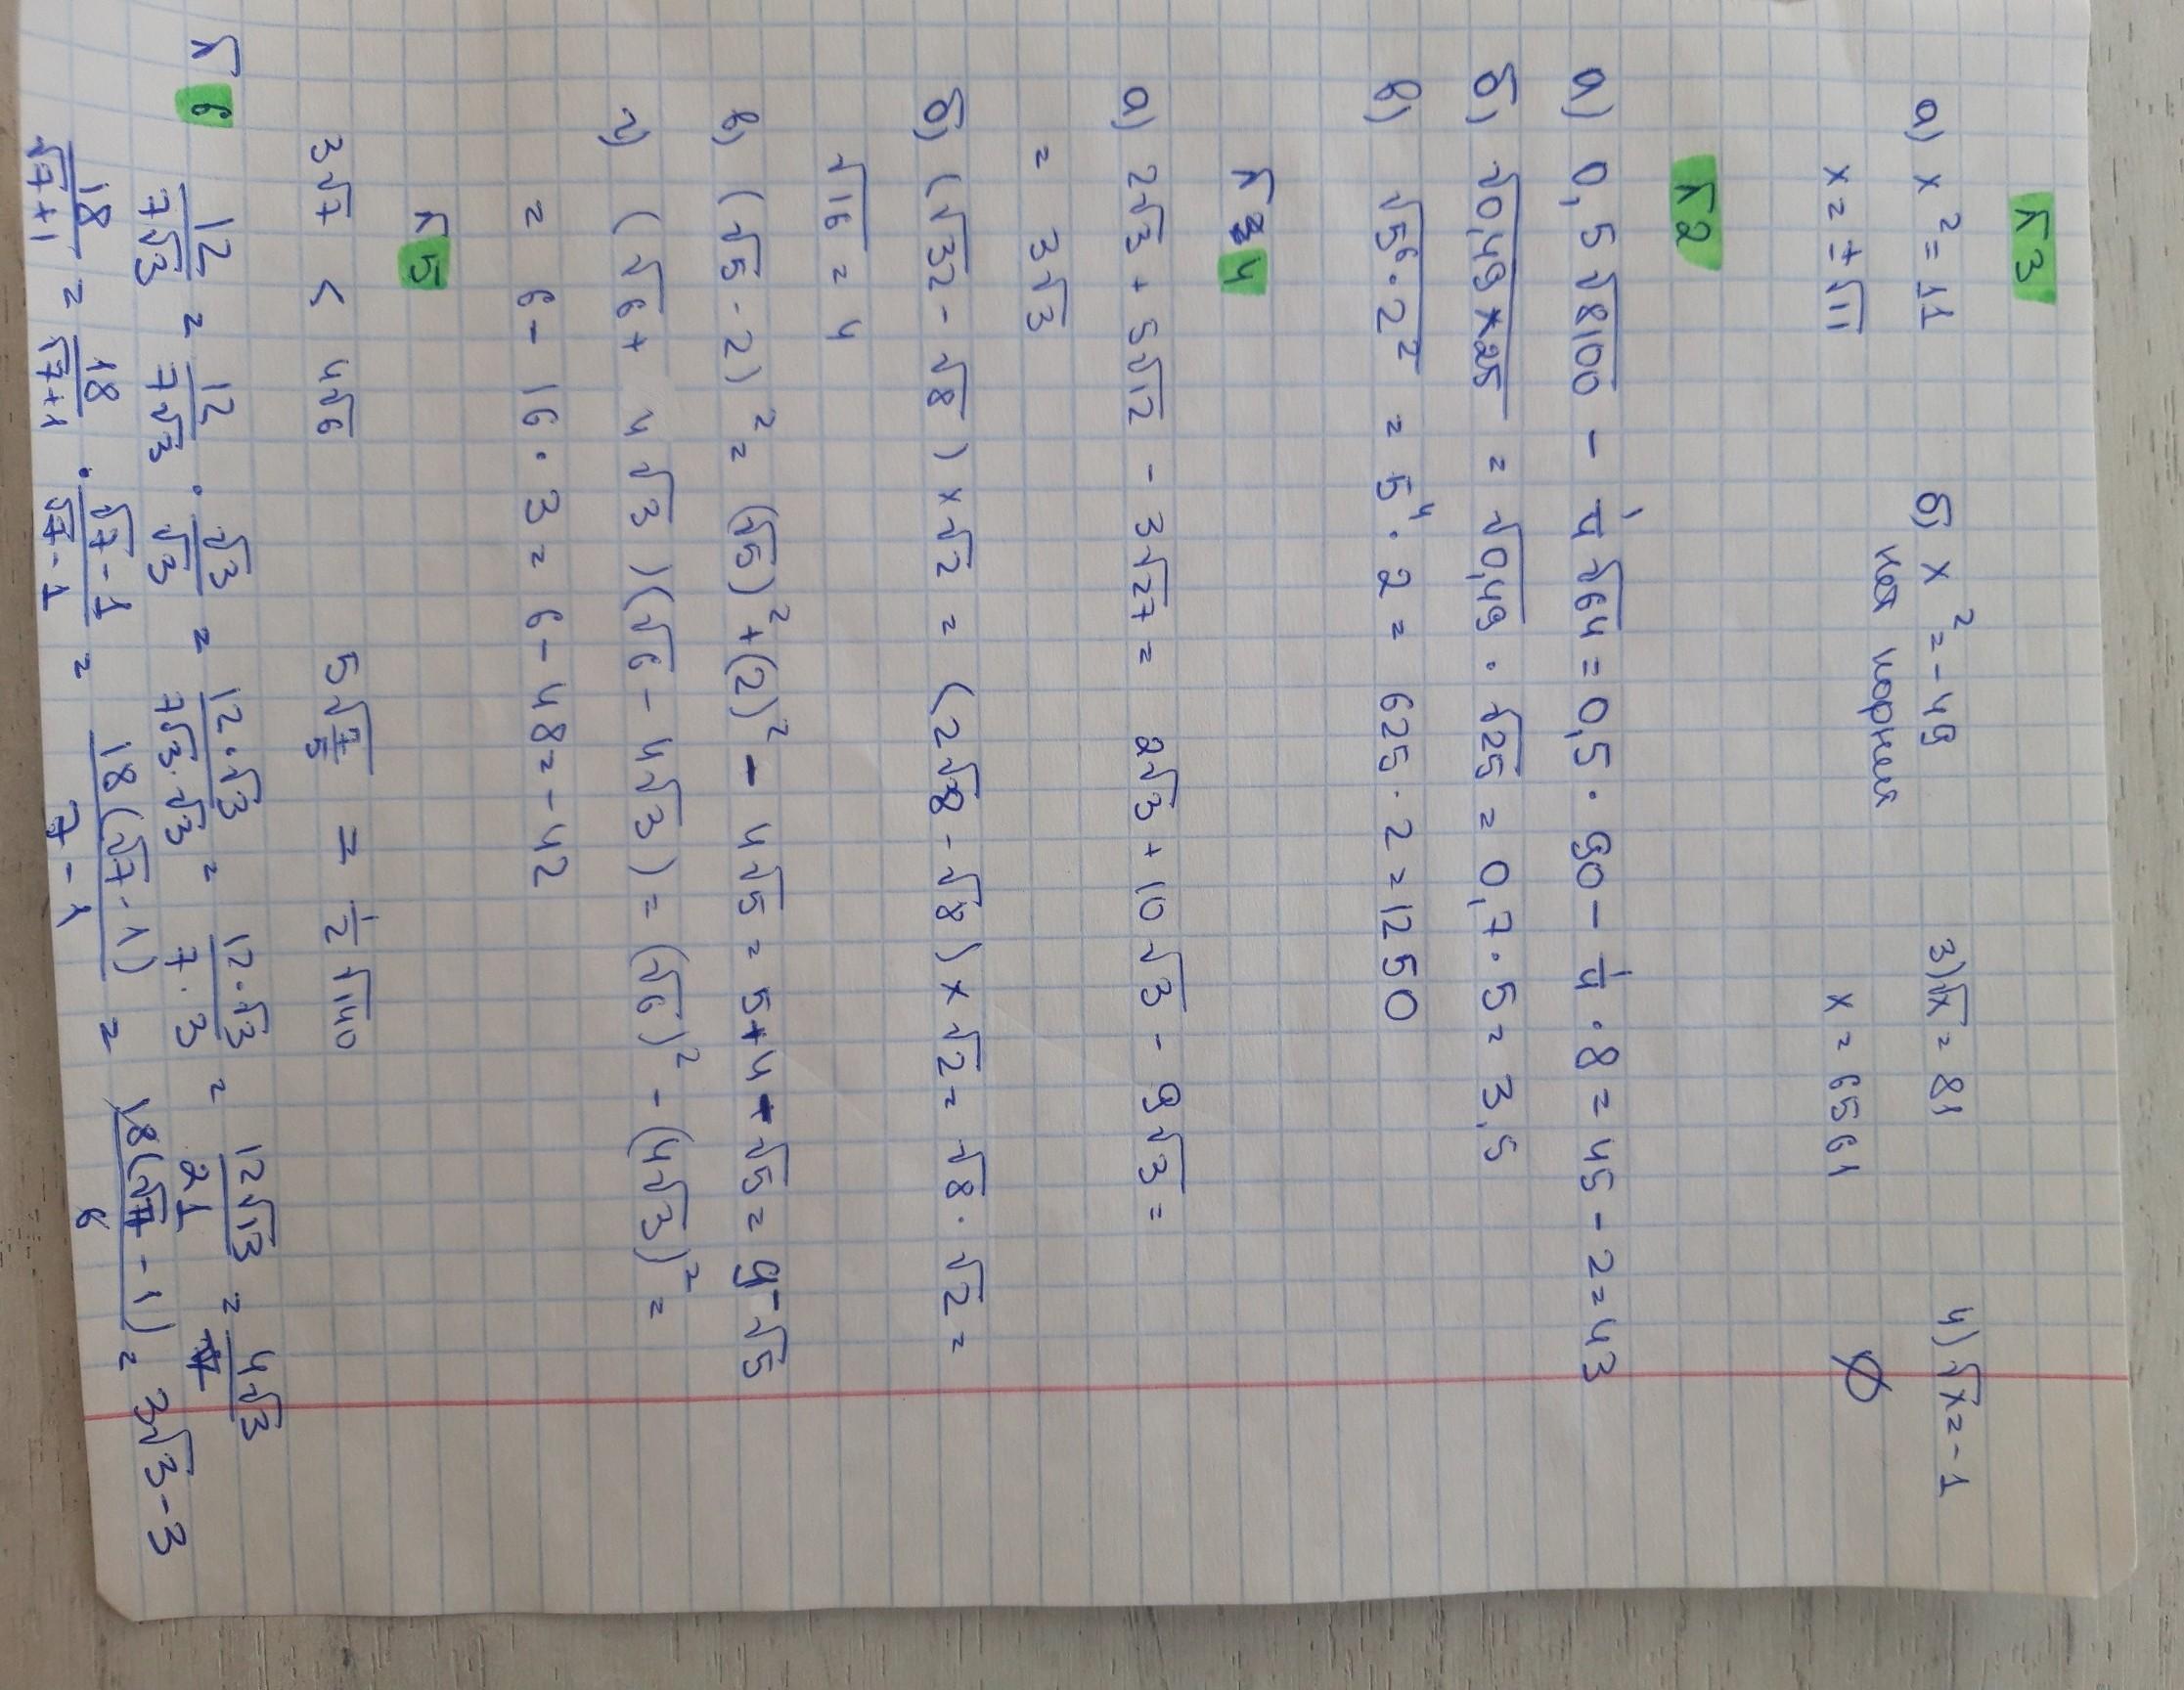 √3
а) x² = 11 б) x² = -49 3) √x = 81 4) √x = -1
x = ±√11 нет корня x = 6561 ∅
√2
а) 0,5√8100 - 1/4 √64 = 0,5 · 90 - 1/4 · 8 = 45 - 2 = 43
б) √0,49×25 = √0,49 · √25 = 0,7 · 5 = 3,5
в) √5⁶·2² = 5⁴ · 2 = 625 · 2 = 1250
√4
а) 2√3 + 5√12 - 3√27 = 2√3 + 10√3 - 9√3 =
= 3√3
б) (√32 - √8) × √2 = (2√8 - √8) × √2 = √8 · √2 =
√16 = 4
в) (√5 - 2)² = (√5)² + (2)² - 4√5 = 5 + 4 - √5 = 9 - √5
г) (√6 + 4√3)(√6 - 4√3) = (√6)² - (4√3)² =
= 6 - 16 · 3 = 6 - 48 = -42
√5
3√7 < 4√6 5√7/5 = 1/2 √140
√6 12/7√3 = 12/7√3 · √3/√3 = 12·√3/7√3·√3 = 12·√3/7·3 = 12√13/21 = 4√3/7
18/√7+1 = 18/√7+1 · √7-1/√7-1 = 18(√7-1)/7-1 = 18(√7-1)/6 = 3√3-3